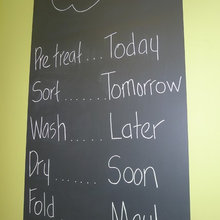 Pretreat....Today
Sort.......Tomorrow
Wash.......Later
Dry.......Soon
Fold